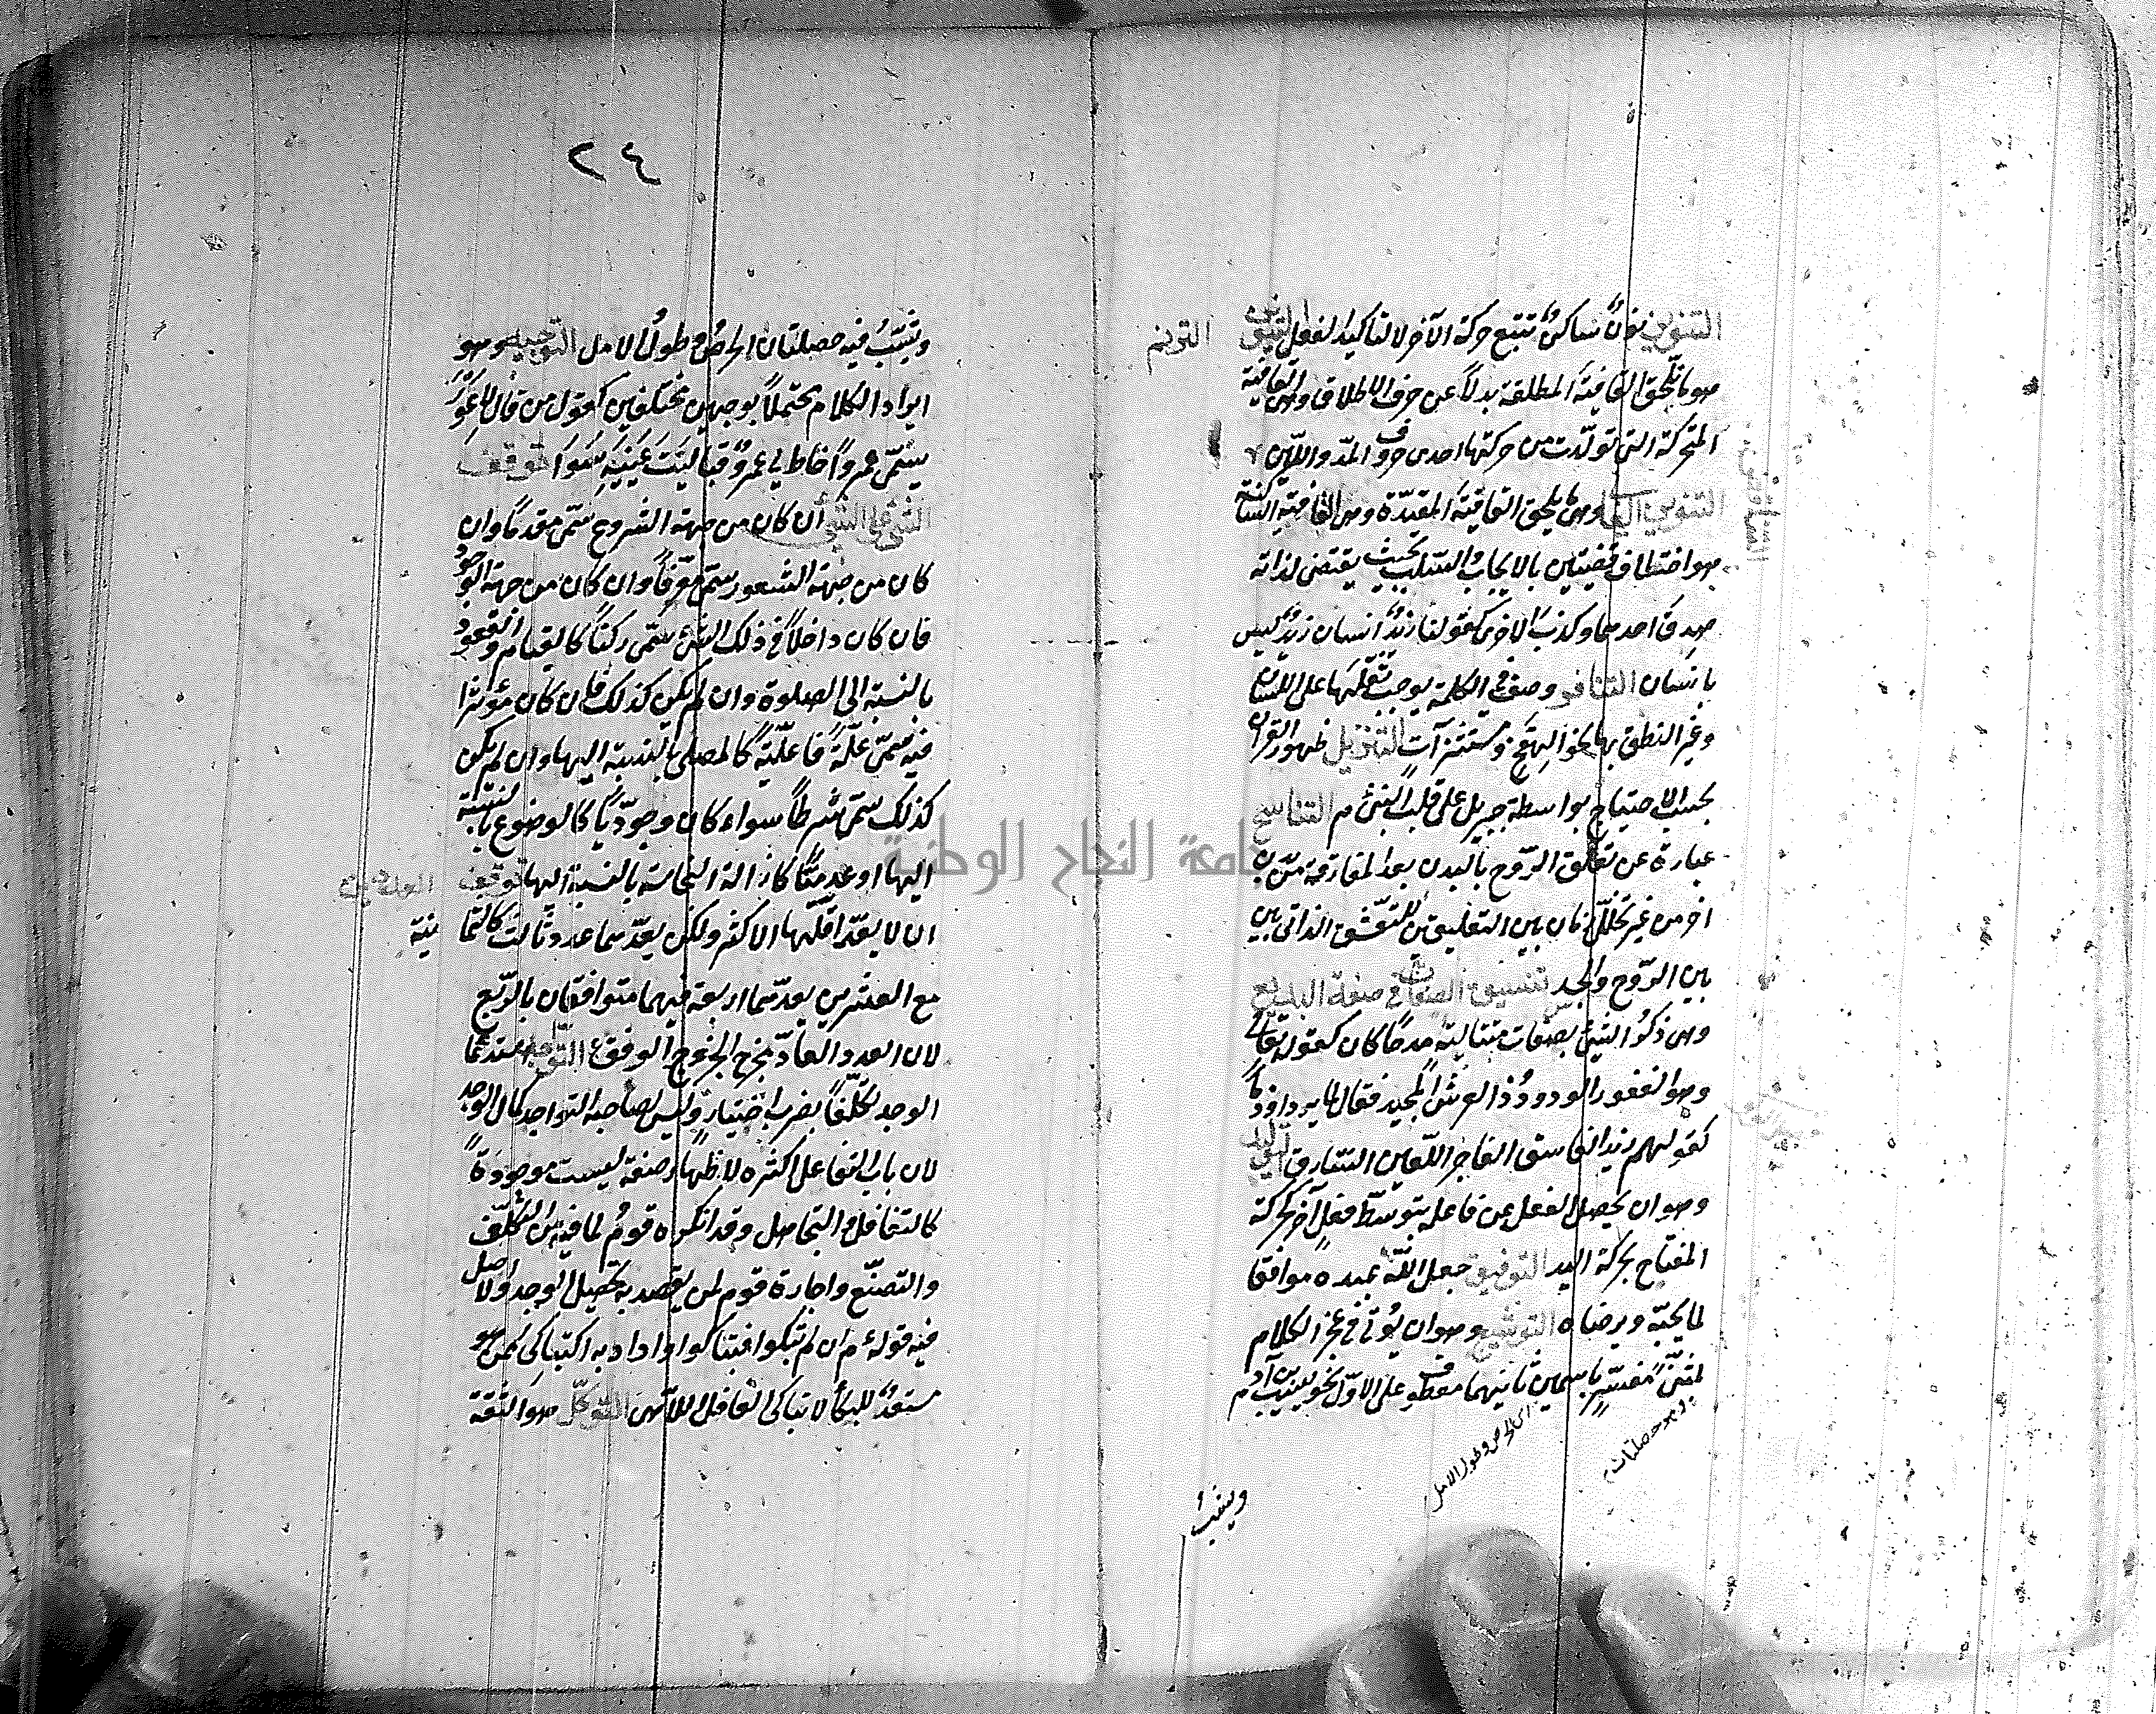 التنوين نون ساكن تتبع حركة الآخر لا لتاكيد الفعل تنوين الترنم
هو ما يلحق القافية المطلقة بدلا عن حرف الاطلاق وهي القافية
المتحركة التي تولدت من حركتها احدى حروف المد واللين
التنوين الغالي وهي ما يلحق القافية المقيدة وهي القافية الساكنة
التناقض
هو اختلاف قضيتين بالايجاب والسلب بحيث يقتضي لذاته
صدق احديهما وكذب الاخرى كقولنا زيد انسان زيد ليس
بانسان التنافر وصف في الكلمة يوجب ثقلها على اللسان
وعسر النطق بها نحو الهعخع ومستشزرات التنزيل ظهور القران
بحسب الاحتياج بواسطة جبريل على قلب النبي م التناسخ
عبارة عن تعلق الروح بالبدن بعد المفارقة من بدن
اخر من غير تخلل زمان بين التعليقين للتعشق الذاتي بين
بين الروح والجسد تنسيق الصفات في صنعة البديع
وهي ذكر الشيء بصفات متتالية مدحا كان كقوله تعالى
وهو الغفور الودود ذو العرش المجيد فعال لما يريد او ذما
كقولهم زيد الفاسق الفاجر اللعين السارق التوليد
وهو ان يحصل الفعل عن فاعله بتوسط فعل آخر كحركة
المفتاح بحركة اليد التوفيق جعل الله عبده موافقا
لما يحبه ويرضاه التوشيع وهو ان يؤتى في عجز الكلام
بمثنى مفسر باسمين ثانيهما معطوف على الاول نحو يشيب ابن آدم
ويشب فيه خصلتان
اي الحرص وطول الامل
ويشب
٢٤
ويشب فيه خصلتان الحرص وطول الامل التوجيه وهو
ايراد الكلام محتملا بوجهين مختلفين كقول من قال لاعور
يسمى عمروا خاط لي عمرو قبا ليت عينيه سوا توقف
الشئ على الشئ ان كان من جهة الشروع سمى مقدما وان
كان من جهة الشعور سمى معرفا وان كان من جهة الوجود
فان كان داخلا في ذلك الشئ سمى ركنا كالقيام والقعود
بالنسبة الى الصلوة وان لم يكن كذلك فان كان مؤثرا
فيه سمى علة فاعلية كالمصلي بالنسبة اليها وان لم يكن
كذلك سمى شرطا سواء كان وجوديا كالوضوع بالنسبة
اليها او عدميا كازالة النجاسة بالنسبة اليها توقف العددين
ان لا يعد اقلهما الاكثر ولكن يعدهما عدد ثالث كالثمانية
مع العشرين يعدهما اربعة فهما متوافقان بالربع
لان العدد العاد مخرج الجزء الوفق التواجد استدعا
الوجد تكلفا بضرب اختيار وليس لصاحبه التواجد كمال الوجد
لان باب التفاعل اكثره لاظهار صفة ليست موجودة
كالتغافل والتجاهل وقد انكره قوم لما فيه من التكلف
والتصنع واجازه قوم لمن يقصد به تحصيل الوجد والاصل
فيه قوله م ان لم تبكوا فتباكوا اراد به التباكي ممن هو
مستعد للبكا لا تباكي الغافل اللاهي التوكل هو الثقة
جامعة النجاح الوطنية